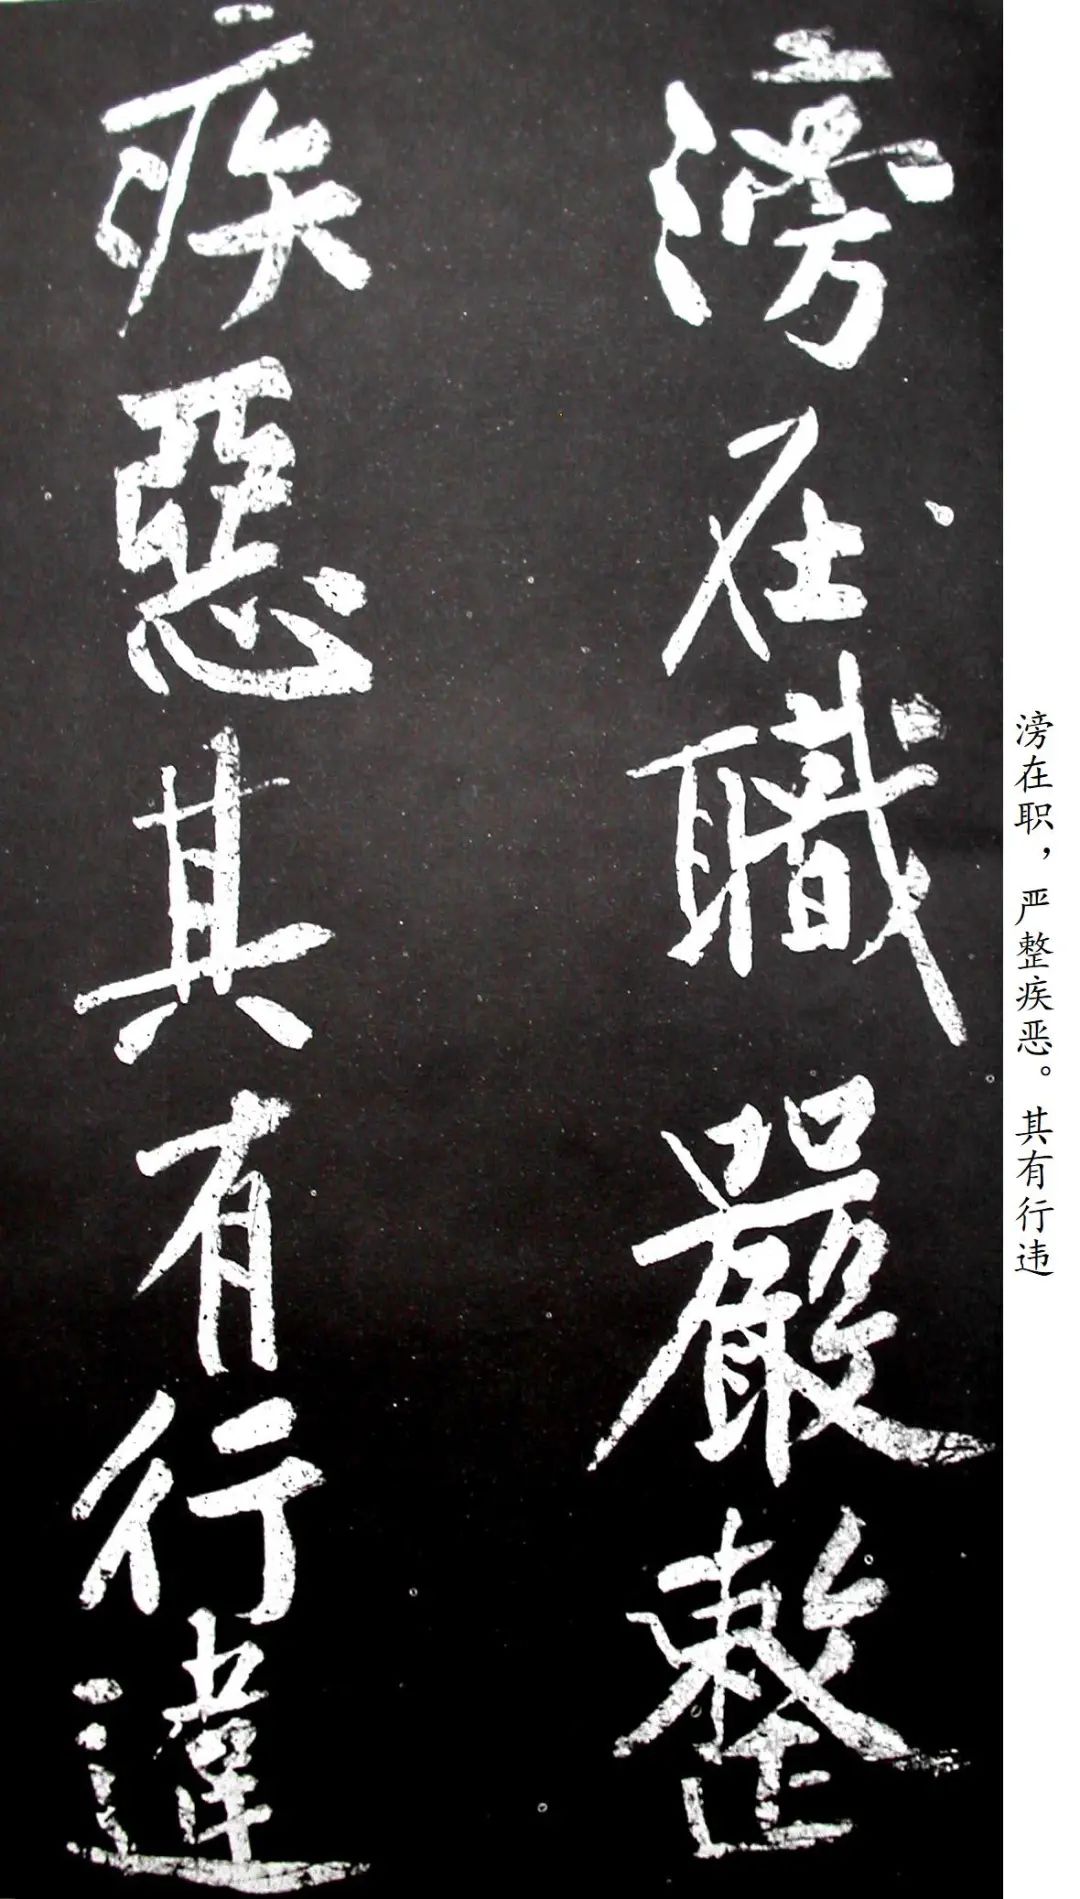 滂在職嚴整
疾惡其有行違
滂在职，严整疾恶。其有行违